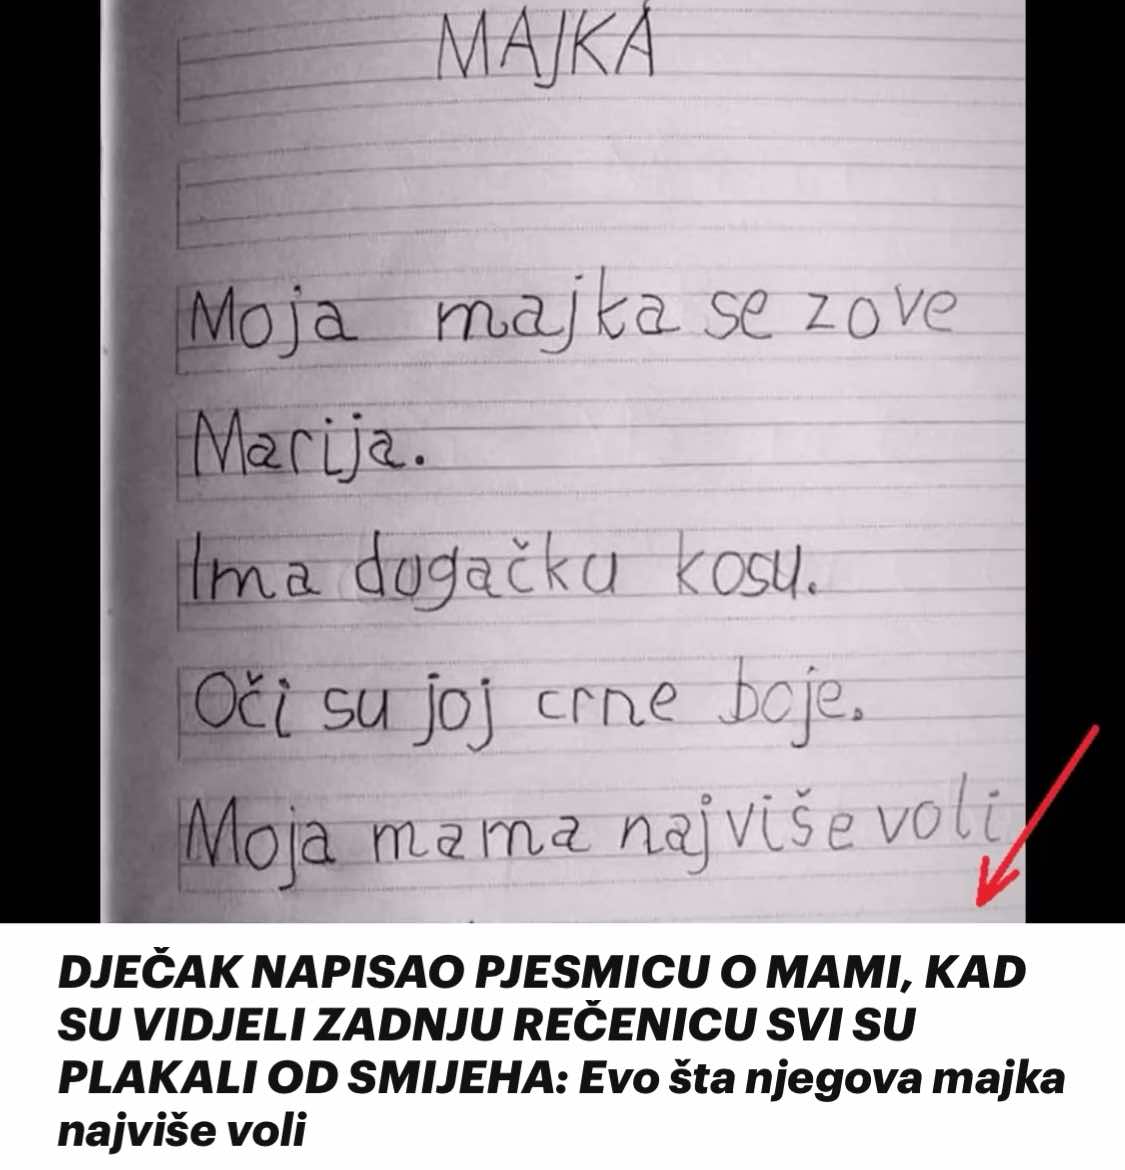 MAJKA
Moja majka se zove
Marija.
Ima dugačku kosu.
Oči su joj crne boje.
Moja mama najviše voli
DJEČAK NAPISAO PJESMICU O MAMI, KAD
SU VIDJELI ZADNJU REČENICU SVI SU
PLAKALI OD SMIJEHA: Evo šta njegova majka
najviše voli